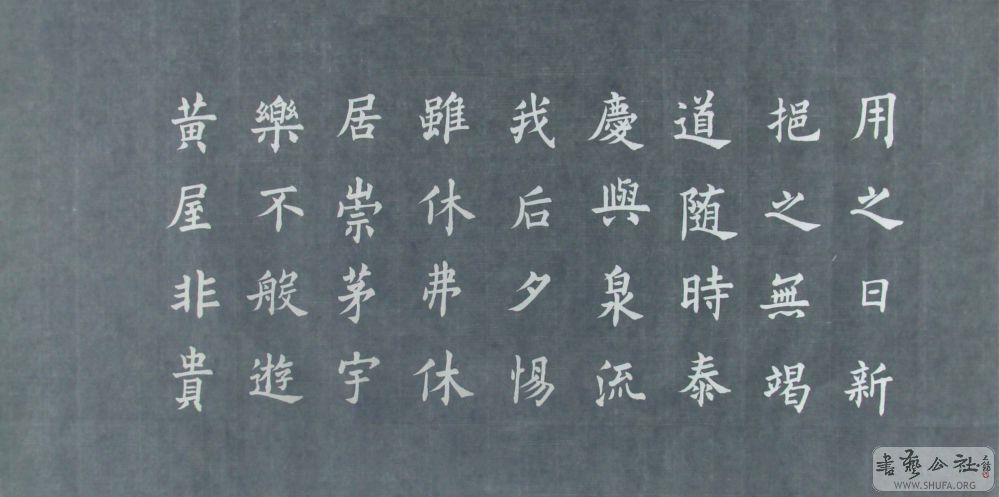 用之日新
挹之無竭
道随時泰
慶與泉流
我后夕惕
雖休弗休
居崇茅宇
樂不般遊
黃屋非貴
書藝公社
WWW.SHUFA.ORG